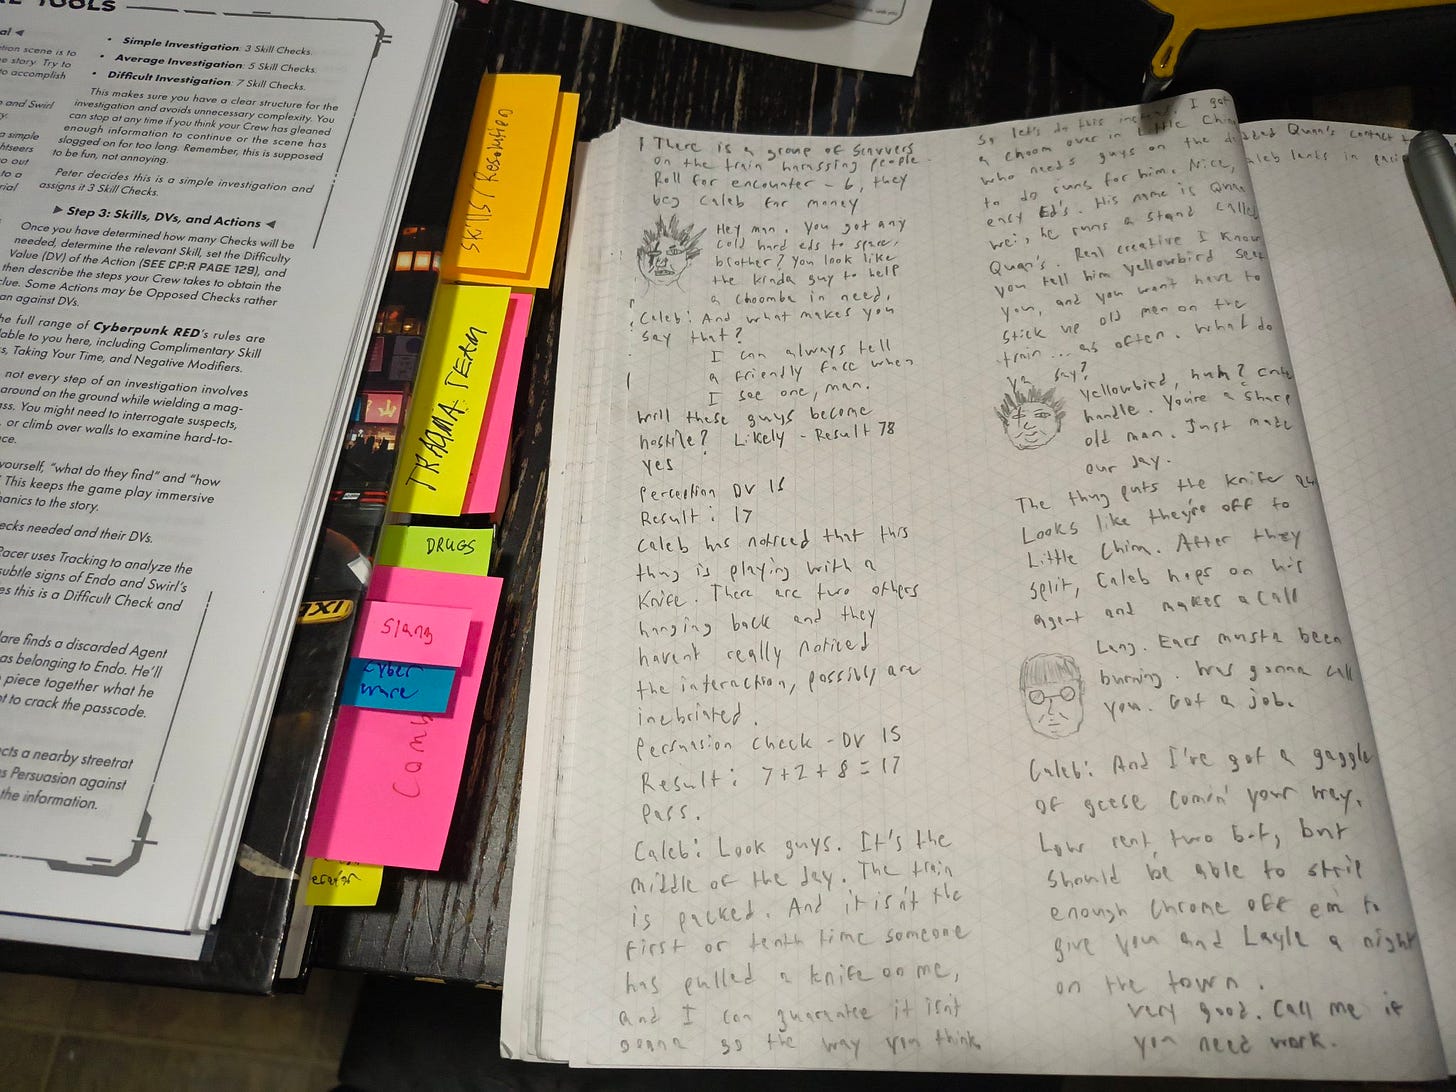 TOOLS
ation scene is to
e story. Try to
to accomplish
and Swirl
a simple
ghtseers
o out
to a
rial
• Simple Investigation: 3 Skill Checks.
• Average Investigation: 5 Skill Checks.
• Difficult Investigation: 7 Skill Checks.
This makes sure you have a clear structure for the
investigation and avoids unnecessary complexity. You
can stop at any time if you think your Crew has gleaned
enough information to continue or the scene has
slogged on for too long. Remember, this is supposed
to be fun, not annoying.
Peter decides this is a simple investigation and
assigns it 3 Skill Checks.
▶ Step 3: Skills, DVs, and Actions ◀
Once you have determined how many Checks will be
needed, determine the relevant Skill, set the Difficulty
Value (DV) of the Action (SEE CP:R PAGE 129), and
then describe the steps your Crew takes to obtain the
clue. Some Actions may be Opposed Checks rather
an against DVs.
he full range of Cyberpunk RED's rules are
lable to you here, including Complimentary Skill
s, Taking Your Time, and Negative Modifiers.
not every step of an investigation involves
around on the ground while wielding a mag-
ass. You might need to interrogate suspects,
, or climb over walls to examine hard-to-
nce.
yourself, "what do they find" and "how
This keeps the game play immersive
hanics to the story.
ecks needed and their DVs.
Racer uses Tracking to analyze the
subtle signs of Endo and Swirl's
es this is a Difficult Check and
lare finds a discarded Agent
as belonging to Endo. He'll
piece together what he
t to crack the passcode.
ects a nearby streetrat
s Persuasion against
the information.
Skills/Resolution
TRAUMA TEAM
DRUGS
Slang
Cyber
ware
Comb
TAXI
There is a group of Scavvers
on the train harassing people.
Roll for encounter - 6, they
beg Caleb for money
Hey man. You got any
cold hard eds to spare,
brother? You look like
the kinda guy to help
a choomba in need.
Caleb: And what makes you
say that?
I can always tell
a friendly face when
I see one, man.
Will these guys become
hostile? Likely - Result 78
yes
Perception DV 15
Result: 17
Caleb has noticed that this
thug is playing with a
Knife. There are two others
hanging back and they
haven't really noticed
the interaction, possibly are
inebriated.
Persuasion Check - DV 15
Result: 7+2+8=17
Pass.
Caleb: Look guys. It's the
middle of the day. The train
is packed. And it isn't the
first or tenth time someone
has pulled a knife on me,
and I can guarantee it isn't
gonna go the way you think.
So let's do this instead. I got
a choom over in Little China
who needs guys on the
to do runs for him. Nice,
easy Ed's. His name is Quan
Wei, he runs a stand called
Quan's. Real creative I know
you tell him Yellowbird sent
you, and you wont have to
stick up old men on the
train... as often. What do
ya say?
Yellowbird, huh? Cute
handle. You're a sharp
old man. Just made
our day.
The thug puts the knife
Looks like they're off to
Little China. After they
split, Caleb hops on his
agent and makes a call
Lang. Ears musta been
burning. Was gonna call
you. Got a job.
Caleb: And I've got a gaggle
of geese comin' your way.
Low rent, two bit, but
should be able to strip
enough Chrome off em to
give you and Layla a night
on the town.
Very good. Call me if
you need work.
Quan's contact
Caleb lands in